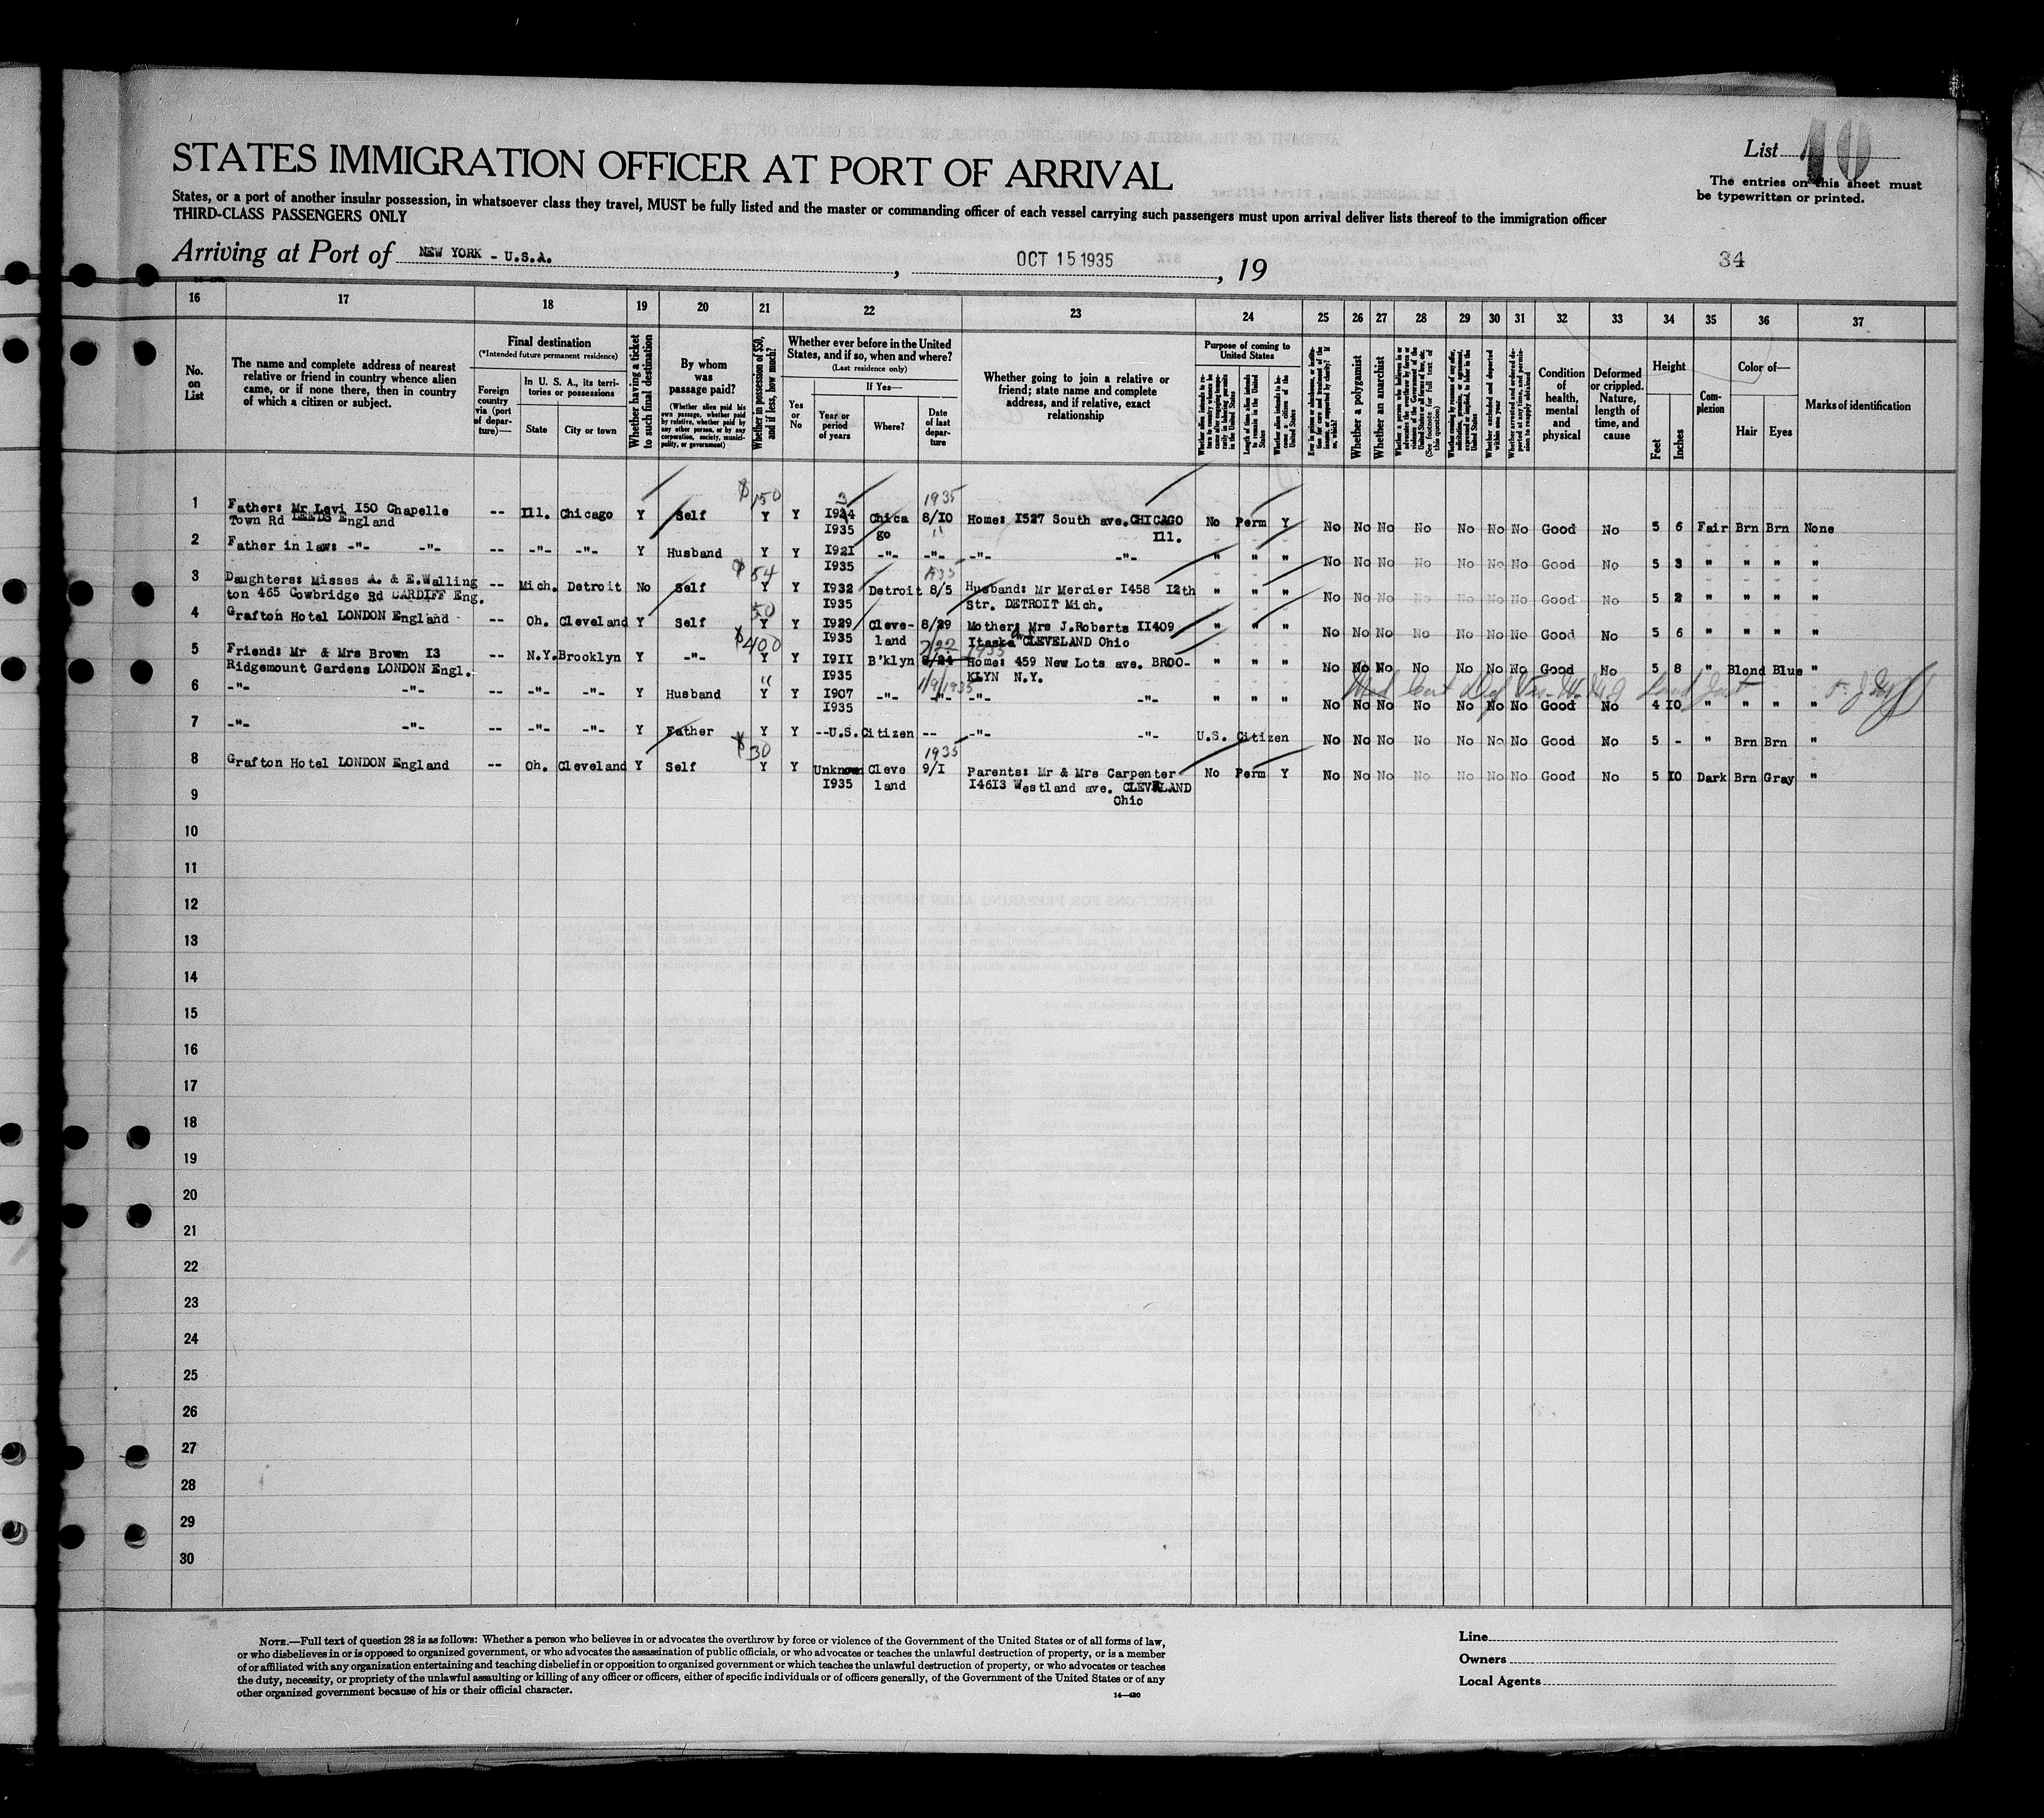 STATES IMMIGRATION OFFICER AT PORT OF ARRIVAL
List 10
The entries on this sheet must
be typewritten or printed.
States, or a port of another insular possession, in whatsoever class they travel, MUST be fully listed and the master or commanding officer of each vessel carrying such passengers must upon arrival deliver lists thereof to the immigration officer
THIRD-CLASS PASSENGERS ONLY
Arriving at Port of NEW YORK - U.S.A. , OCT 15 1935 , 19
34
16 17 18 19 20 21 22 23 24 25 26 27 28 29 30 31 32 33 34 35 36 37
No. on List
The name and complete address of nearest relative or friend in country whence alien came, or if none there, then in country of which a citizen or subject.
Final destination
(*Intended future permanent residence)
Foreign country via (port of departure)—
In U. S. A., its territories or possessions
State
City or town
Whether having a ticket to such final destination
By whom was passage paid?
(Whether alien paid his own passage, whether paid by relative, whether paid by any other person, or by any corporation, society, municipality, or government)
Whether in possession of $50, and if less, how much?
Whether ever before in the United States, and if so, when and where?
(Last residence only)
Yes or No
If Yes—
Year or period of years
Where?
Date of last departure
Whether going to join a relative or friend; state name and complete address, and if relative, exact relationship
Purpose of coming to United States
Length of time alien intends to remain in the United States
Whether alien intends to become a citizen of the United States
Whether a polygamist
Whether an anarchist
Whether excluded and deported within one year
Condition of health, mental and physical
Deformed or crippled. Nature, length of time, and cause
Height
Feet
Inches
Complexion
Color of—
Hair
Eyes
Marks of identification
$150 3 1935
1 Father: Mr Levi I50 Chapelle -- Ill. Chicago Y Self Y Y I924 Chica 8/I0 Home: I527 South ave. CHICAGO No Perm Y No No No No No No No Good No 5 6 Fair Brn Brn None
Town Rd LEEDS England I935 go " Ill.
2 Father in law: -"- -"- -- -"- -"- Y Husband Y Y I92I -"- -"- -"- -"- " " " No No No No No No No Good No 5 3 " " " "
I935
$54 1935
3 Daughters: Misses A. & E.Walling -- Mich. Detroit No Self Y Y I932 Detroit 8/5 Husband: Mr Mercier I458 I2th " " " No No No No No No No Good No 5 2 " " " "
ton 465 Cowbridge Rd CARDIFF Eng. I935 Str. DETROIT Mich.
50
4 Grafton Hotel LONDON England -- Oh. Cleveland Y Self Y Y I929 Cleve- 8/29 Mother: Mrs J.Roberts II409 " " " No No No No No No No Good No 5 6 " " " "
I935 land Itaska CLEVELAND Ohio
$400 7/22 1935
5 Friend: Mr & Mrs Brown I3 -- N.Y. Brooklyn Y -"- Y Y I9II B'klyn 8/24 Home: 459 New Lots ave. BROO- " " " No No No No No No No Good No 5 8 " Blond Blue "
Ridgemount Gardens LONDON Engl. I935 KLYN N.Y.
" 1/9/1935
6 -"- -"- -- -"- -"- Y Husband Y Y I907 -"- -"- -"- -"- " " " No No No No No No No Good No 4 I0 " " " "
I935
7 -"- -"- -- -"- -"- Y Father Y Y --U.S. Citizen -- -"- -"- U.S. Citizen No No No No No No No Good No 5 - " Brn Brn "
$30 1935
8 Grafton Hotel LONDON England -- Oh. Cleveland Y Self Y Y Unknown Cleve 9/I Parents: Mr & Mrs Carpenter No Perm Y No No No No No No No Good No 5 I0 Dark Brn Gray "
I935 land I46I3 Westland ave. CLEVELAND
Ohio
9
10
11
12
13
14
15
16
17
18
19
20
21
22
23
24
25
26
27
28
29
30
NOTE.—Full text of question 28 is as follows: Whether a person who believes in or advocates the overthrow by force or violence of the Government of the United States or of all forms of law,
or who disbelieves in or is opposed to organized government, or who advocates the assassination of public officials, or who advocates or teaches the unlawful destruction of property, or is a member
of or affiliated with any organization entertaining and teaching disbelief in or opposition to organized government or which teaches the unlawful destruction of property, or who advocates or teaches
the duty, necessity, or propriety of the unlawful assaulting or killing of any officer or officers, either of specific individuals or of officers generally, of the Government of the United States or of any
other organized government because of his or their official character.
14—430
Line
Owners
Local Agents